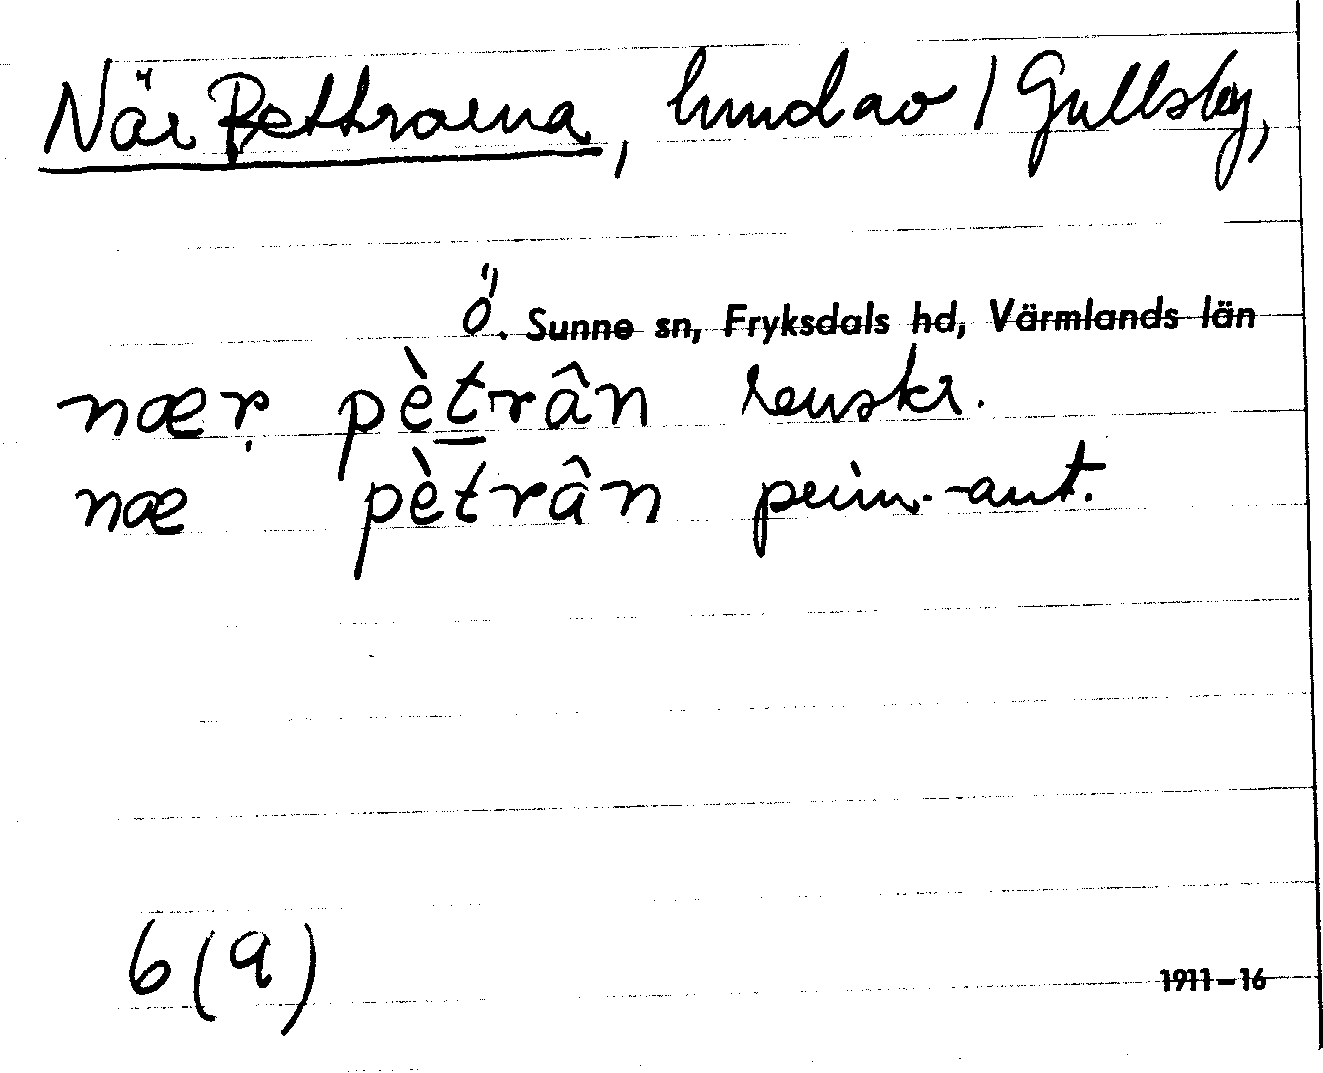 När Pettrarna, lundar / Gullsby,
Ö. Sunne sn, Fryksdals hd, Värmlands län
næṛ pètrân renskr.
næ pètrân prim.-ant.
6 (a)
1911–16